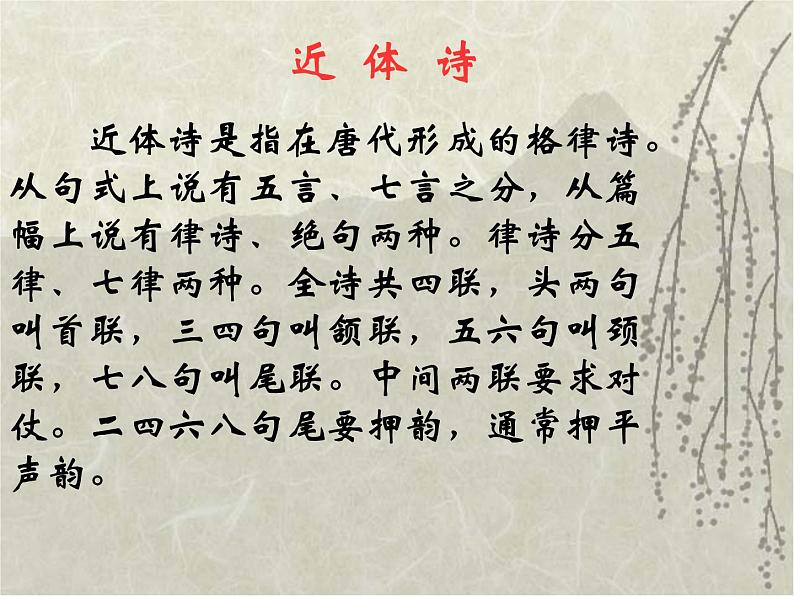 近 体 诗
近体诗是指在唐代形成的格律诗。
从句式上说有五言、七言之分，从篇
幅上说有律诗、绝句两种。律诗分五
律、七律两种。全诗共四联，头两句
叫首联，三四句叫颔联，五六句叫颈
联，七八句叫尾联。中间两联要求对
仗。二四六八句尾要押韵，通常押平
声韵。